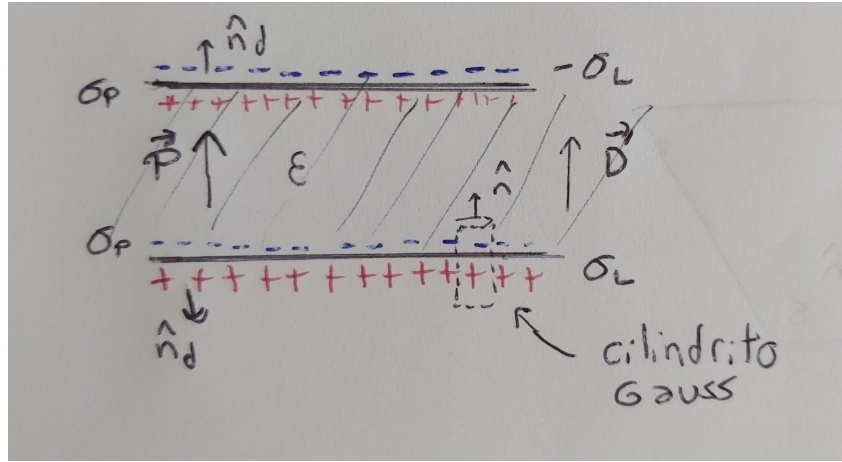 n̂d
- - - - - - - - - - - -
-σL
σP
+ + + + + + + + + + + + + +
P⃗
ε
n̂
D⃗
σP
- - - - - - - - - - - - -
+ + + + + + + + + + + + +
σL
n̂d
cilindrito
Gauss